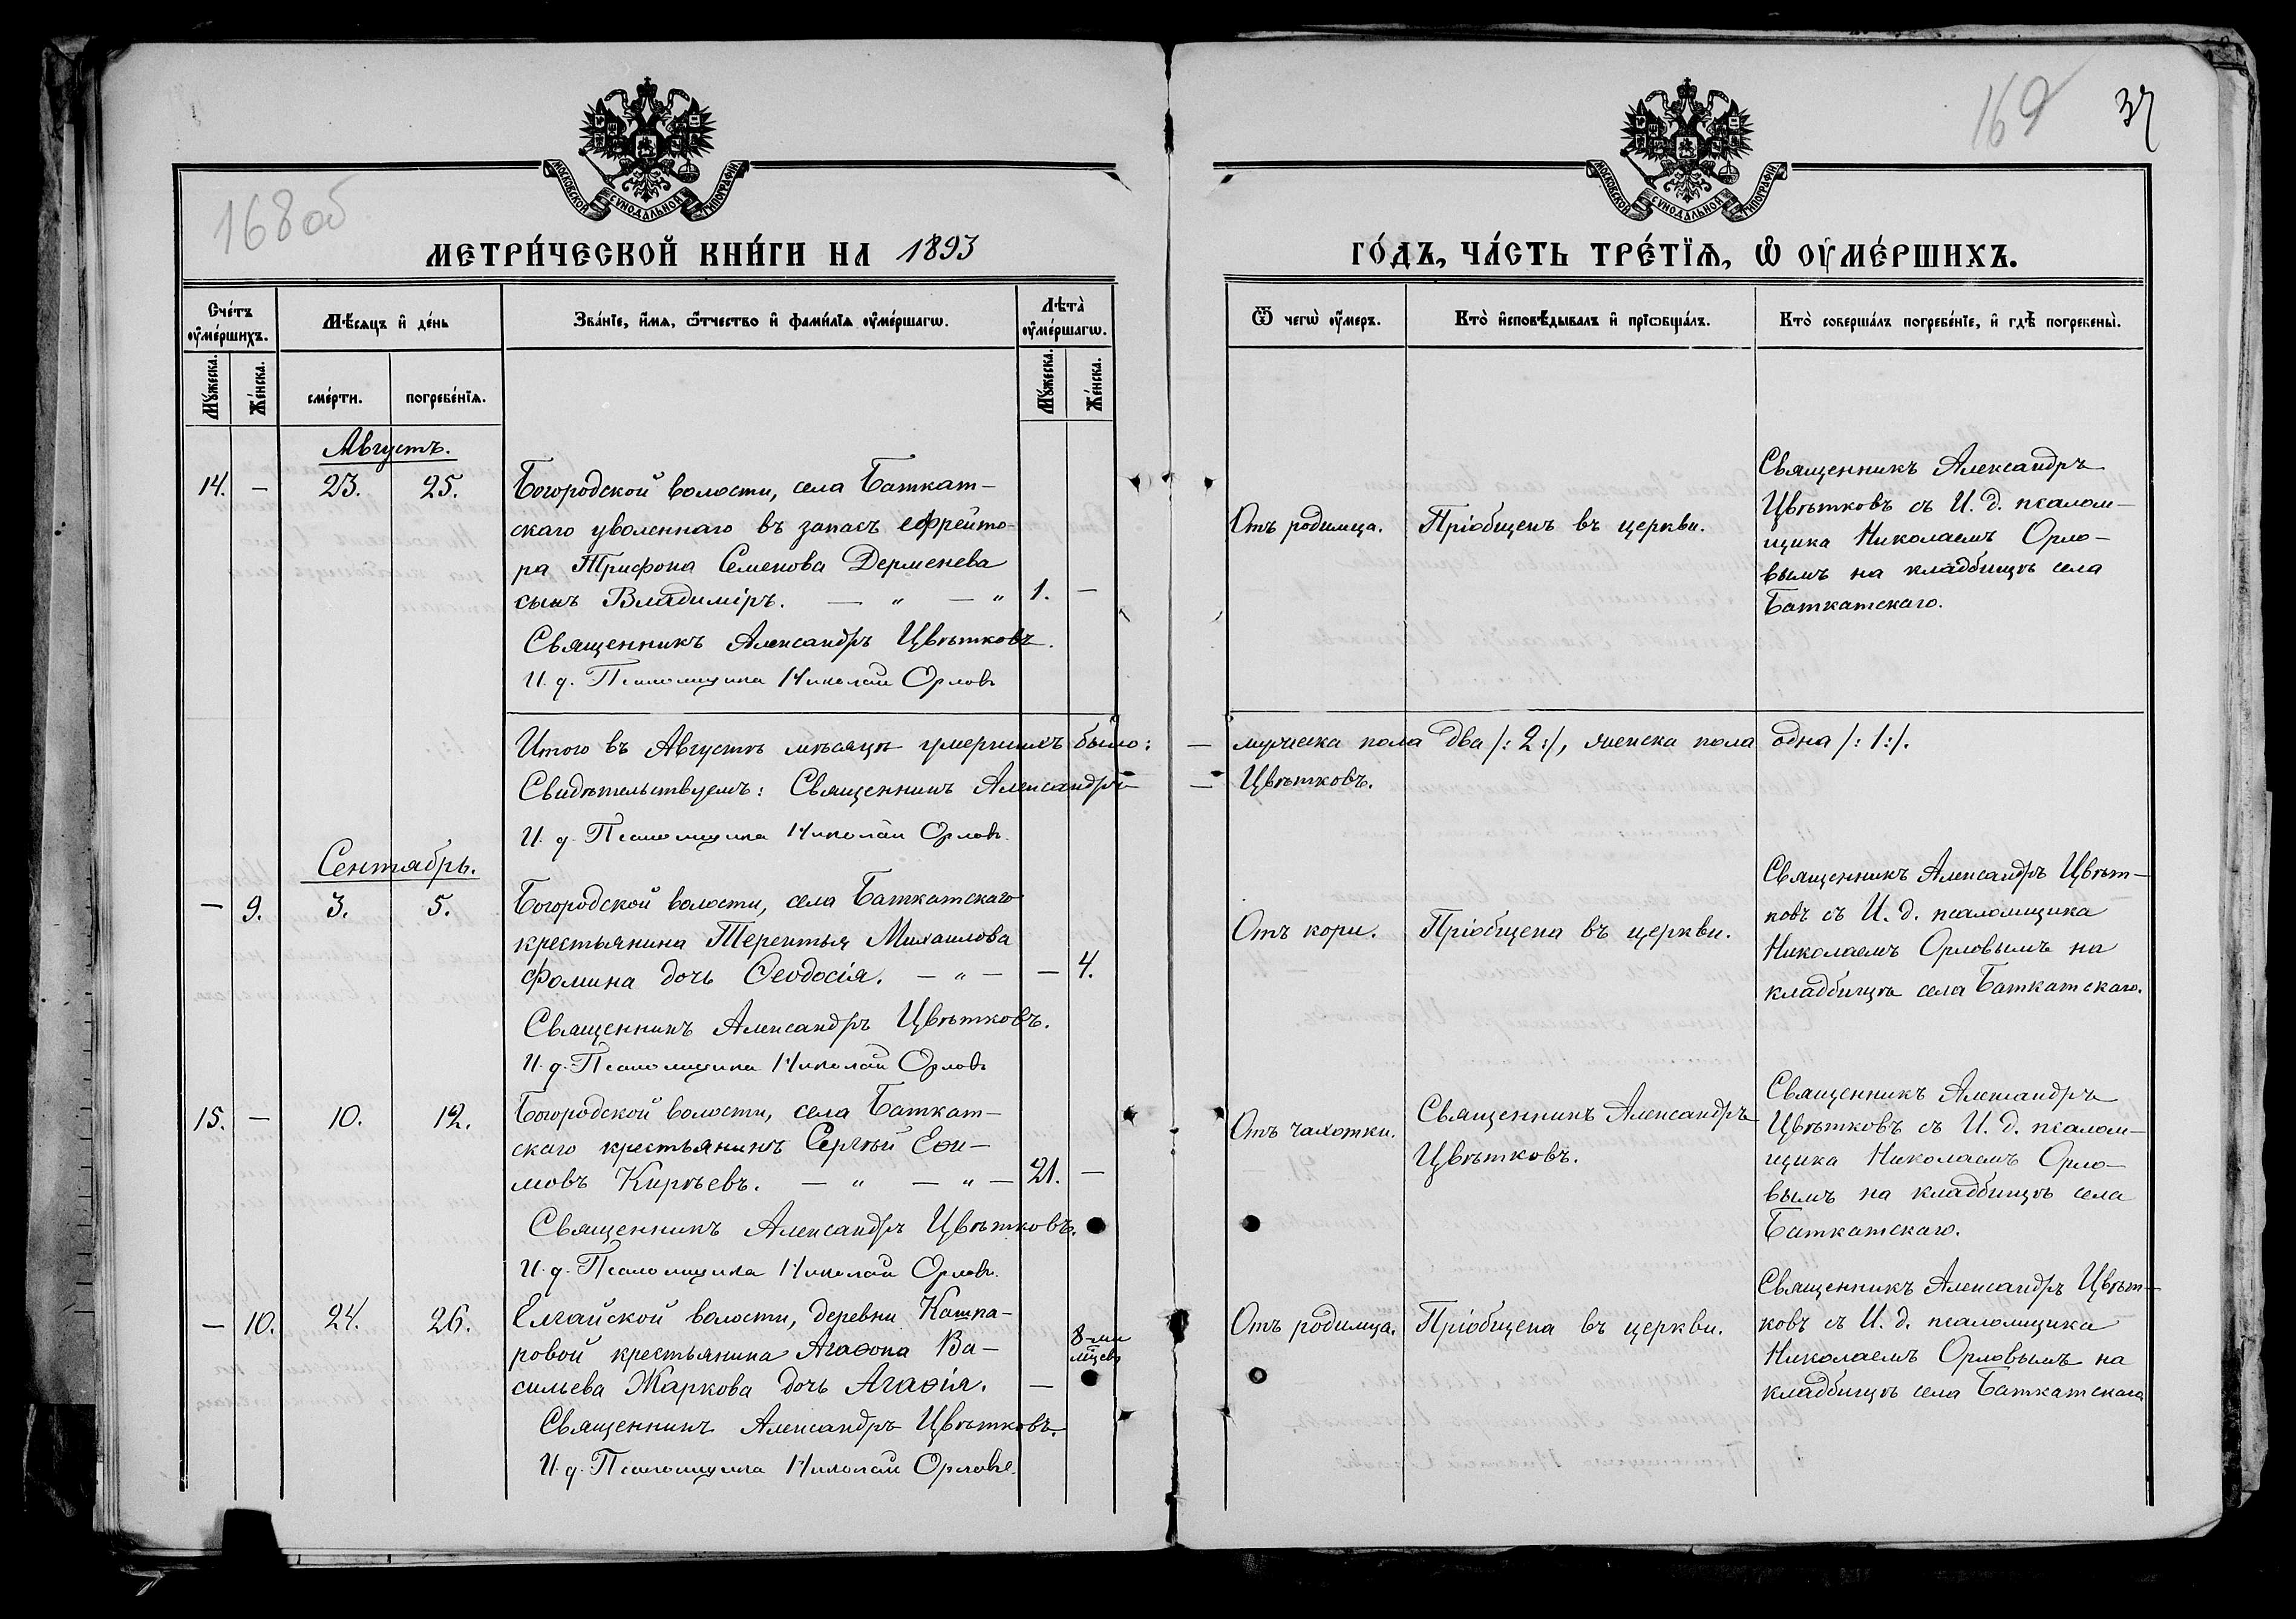 168 об
169
37
МОСКОВСКОЙ СУНОДАЛЬНОЙ ТИПОГРАФІИ.
МОСКОВСКОЙ СУНОДАЛЬНОЙ ТИПОГРАФІИ.
МЕТРИ́ЧЕСКОЙ КНИ́ГИ НА 1893
ГО́ДЪ, ЧА́СТЬ ТРЕ́ТЇѦ, Ѡ҆ ОУ҆МЕ́РШИХЪ.
Сче́тъ оу҆ме́ршихъ.
Мꙋ́жеска.
Же́нска.
Мѣ́сѧцъ и҆ де́нь
сме́рти.
погребе́нїѧ.
Зва́нїе, и҆́мѧ, ѻ҆́тчество и҆ фами́лїѧ оу҆ме́ршагѡ.
Лѣта̀ оу҆ме́ршагѡ.
Мꙋ́жеска.
Же́нска.
Ѿ чегѡ̀ оу҆́меръ.
Кто̀ и҆сповѣ́дывалъ и҆ прїѡбща́лъ.
Кто̀ соверша́лъ погребе́нїе, и҆ гдѣ̀ погребены̀.
Августъ.
14. — 23. 25.
Богородской волости, села Баткат-
скаго уволеннаго въ запасъ ефрейто-
ра Трифона Семенова Дерменева
сынъ Владиміръ. — „ — „ 1. —
Священникъ Александръ Цвѣтковъ.
И. д. Псаломщика Николай Орловъ
Отъ родимца.
Пріобщенъ въ церкви.
Священникъ Александръ
Цвѣтковъ съ И. д. псалом-
щика Николаемъ Орло-
вымъ на кладбищѣ села
Баткатскаго.
Итого въ Августѣ мѣсяцѣ умершихъ было: — мужеска пола два /: 2 :/, женска пола одна /: 1 :/.
Свидѣтельствуемъ: Священникъ Александръ — Цвѣтковъ.
И. д. Псаломщика Николай Орловъ.
Сентябрь.
— 9. 3. 5.
Богородской волости, села Баткатскаго
крестьянина Терентья Михаилова
Фомина дочь Ѳеодосія. — „ — — 4.
Священникъ Александръ Цвѣтковъ.
И. д. Псаломщика Николай Орловъ
Отъ кори.
Пріобщена въ церкви.
Священникъ Александръ Цвѣт-
ковъ съ И. д. псаломщика
Николаемъ Орловымъ на
кладбищѣ села Баткатскаго.
15. — 10. 12.
Богородской волости, села Баткат-
скаго крестьянинъ Сергѣй Еѳи-
мовъ Кирѣевъ. — „ — „ — 21. —
Священникъ Александръ Цвѣтковъ.
И. д. Псаломщика Николай Орловъ.
Отъ чахотки.
Священникъ Александръ
Цвѣтковъ.
Священникъ Александръ
Цвѣтковъ съ И. д. псалом-
щика Николаемъ Орло-
вымъ на кладбищѣ села
Баткатскаго.
— 10. 24. 26.
Елгайской волости, деревни Кашпа-
ровой крестьянина Агаѳона Ва-
сильева Жаркова дочь Агаѳія. —
8-ми
мѣцевъ
Священникъ Александръ Цвѣтковъ.
И. д. Псаломщика Николай Орловъ.
Отъ родимца.
Пріобщена въ церкви.
Священникъ Александръ Цвѣт-
ковъ съ И. д. псаломщика
Николаемъ Орловымъ на
кладбищѣ села Баткатскаго